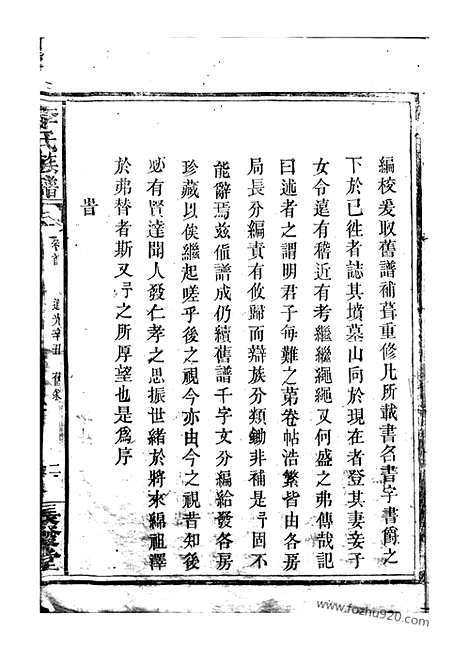 編校爰取舊譜補葺重修凡所載書名書字書爵之
下於已徃者誌其墳墓山向於現在者登其妻妾子
女令遠有稽近有考繼繼繩繩又何盛之弗傳哉記
曰述者之謂明君子每難之第卷帖浩繁皆由各房
局長分編責有攸歸而辯族分類鋤非補是予固不
能辭焉兹値譜成仍續舊譜千字文分編給發各房
珍藏以俟繼起嗟乎後之視今亦由今之視昔知後
必有賢達聞人發仁孝之思振世緒於將來綿祖澤
於弗替者斯又予之所厚望也是為序
旹
李氏族譜
卷首
道光辛丑
二
www.fozhu920.com